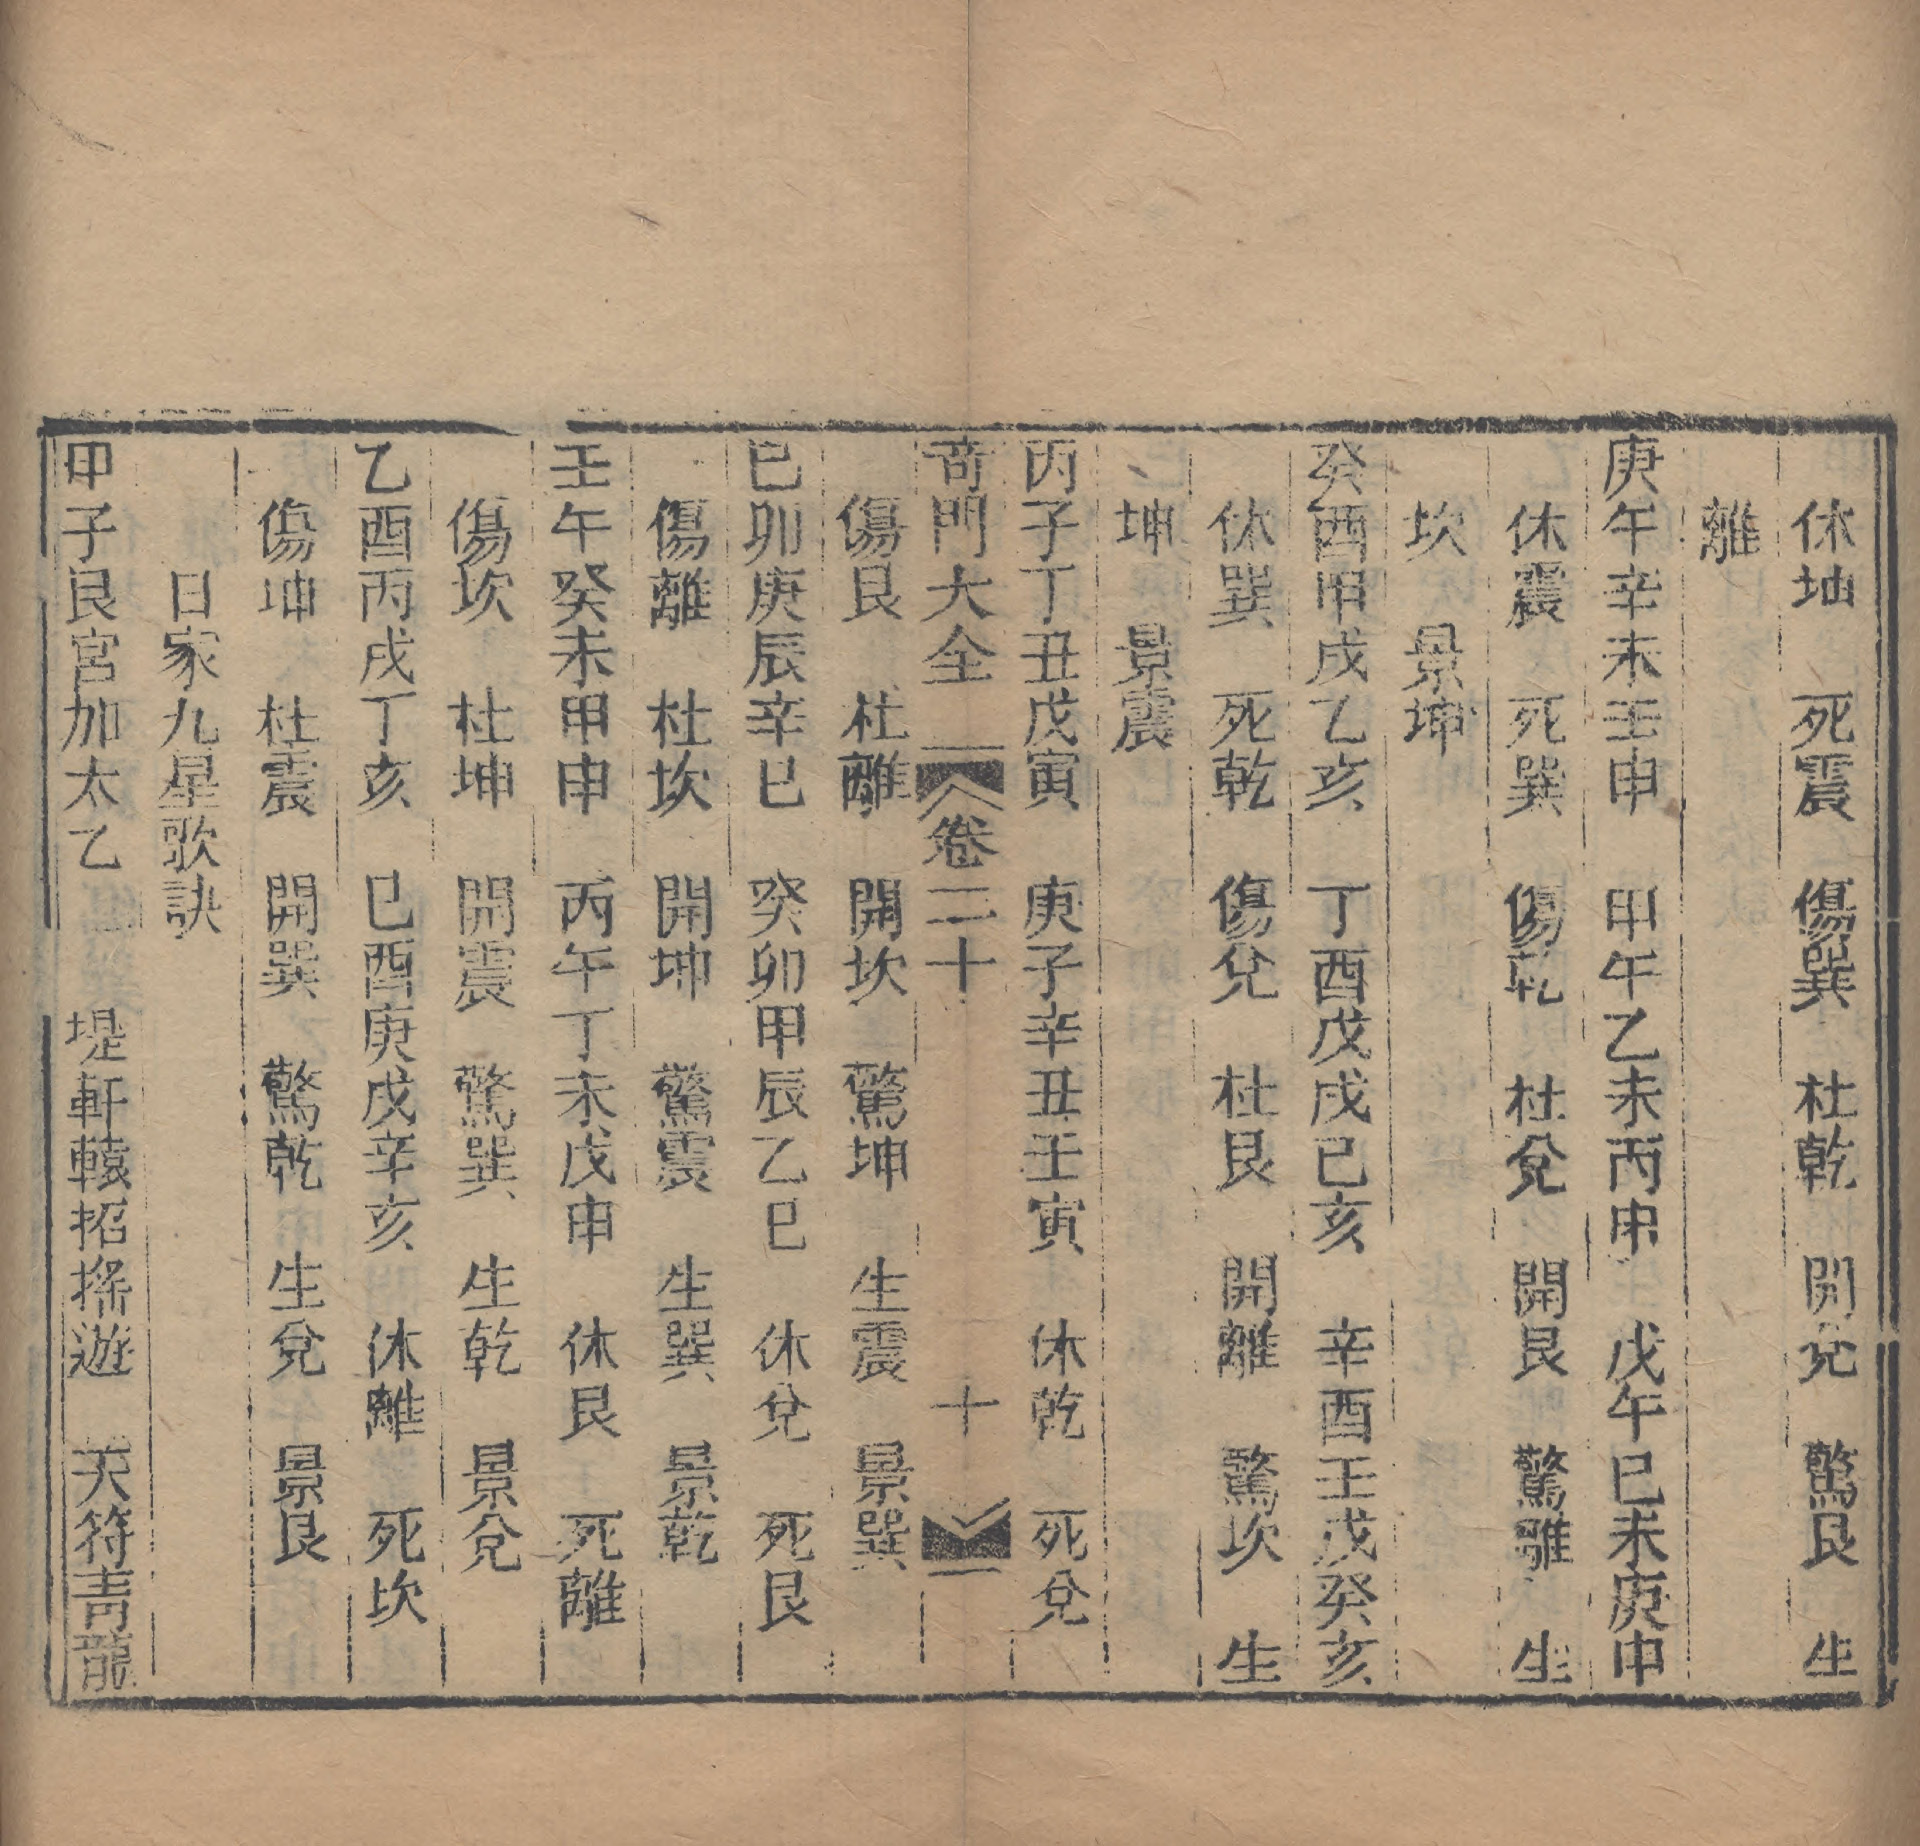 休坤　死震　傷巽　杜乾　開兌　驚艮　生
離
庚午辛未壬申　甲午乙未丙申　戊午巳未庚申
休震　死巽　傷乾　杜兌　開艮　驚離　生
坎　景坤
癸酉甲戌乙亥　丁酉戊戌巳亥　辛酉壬戌癸亥
休巽　死乾　傷兌　杜艮　開離　驚坎　生
坤　景震
丙子丁丑戊寅　庚子辛丑壬寅　休乾　死兌
奇門大全　卷二十　十
傷艮　杜離　開坎　驚坤　生震　景巽
巳卯庚辰辛巳　癸卯甲辰乙巳　休兌　死艮
傷離　杜坎　開坤　驚震　生巽　景乾
壬午癸未甲申　丙午丁未戊申　休艮　死離
傷坎　杜坤　開震　驚巽　生乾　景兌
乙酉丙戌丁亥　巳酉庚戌辛亥　休離　死坎
傷坤　杜震　開巽　驚乾　生兌　景艮
日家九星歌訣
甲子艮宮加太乙　堤軒轅招搖遊　天符青龍